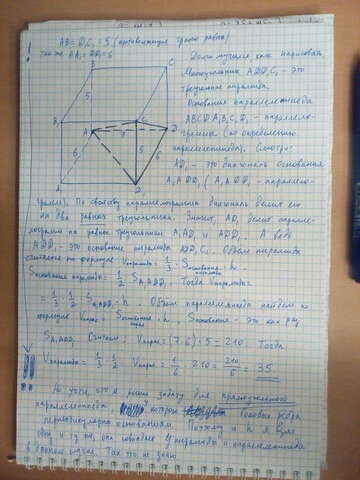 AB = D₁C₁ = 5 (противолежащие грани равны)
также AA₁ = DD₁ = 6
B
C
5
B₁
C₁
A
D
7
6
5
6
A₁
D₁
Долго мучился, как нарисовать.
Многоугольник ADD₁C₁ - это
треугольная пирамида.
Основания параллелепипеда
ABCDA₁B₁C₁D₁ - параллело-
граммы (по определению
параллелепипеда). Смотри:
AD₁ - это диагональ основания
A₁ADD₁ (A₁ADD₁ - параллело-
грамм). По свойству параллелограмма диагональ делит его
на два равных треугольника. Значит, AD₁ делит паралле-
лограмм на равные треугольники A₁AD₁ и ADD₁. А ведь
ADD₁ - это основание пирамиды ADD₁C₁. Объём пирамиды
считается по формуле Vпирамиды = 1/3 · Sоснования пирамиды · h.
Sоснования пирамиды = 1/2 SA₁ADD₁. Тогда Vпирамиды =
= 1/3 · 1/2 SA₁ADD₁ · h. Объём параллелепипеда найдем по
формуле Vпарал = Sоснования · h. Sоснования - это как раз
SA₁ADD₁. Считаем: Vпарал = (7·6)·5 = 210. Тогда
Vпирамиды = 1/3 · 1/2 Vпарал = 1/6 · 210 = 210/6 = 35
Но учти, что я решил задачу для прямоугольного
параллелепипеда, у которого боковые ребра
перпендикулярны основаниям. Поэтому и h я взял
одну и ту же, она совпадает у пирамиды и параллелепипеда
в данном случае. Так что не знаю.